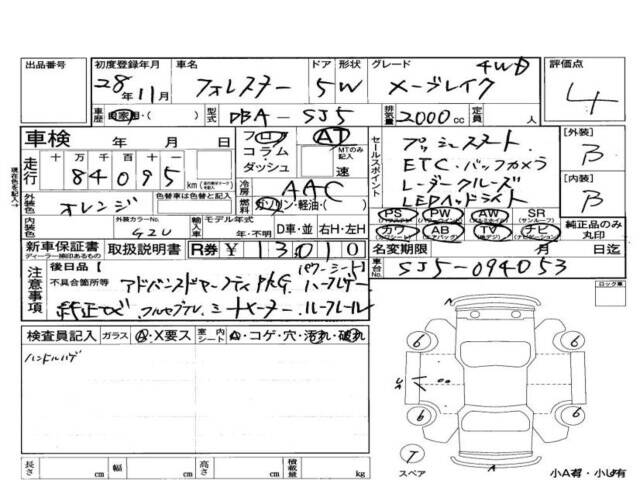 出品番号 初度登録年月 車名 ドア 形状 グレード 評価点
28年 11月 フォレスター 5 W メーブレイク 4WD 4
車歴 自家用・( ) 型式 DBA-SJ5 排気量 2000cc 定員 人
車検 年 月 日 フロア AT セールスポイント プッシュスタート [外装]
走行 十 万 千 百 十 一 コラム MTのみ記入 ETC・バックカメラ B
84095 km ダッシュ 速 レーダークルーズ [内装]
現在色を記入→ 冷房 AAC LEDヘッドライト B
外装色 オレンジ 色替車は色替と記入 燃料 ガソリン・軽油・( )
PS PW AW SR (サンルーフ)
内装色 外装カラーNo. G2U 輸入車 モデル年式 年・不明 D車・並 右H・左H カワ AB (エアバッグ) TV ナビ 純正品のみ丸印
新車保証書 取扱説明書 R券 ¥13010 名変期限 月 日迄
ディーラー捺印あるもの
車台No. SJ5-094053
注意事項 後日品 [パワーシート]
不具合箇所等 アドバンスドセーフティPKG.
純正ナビ、フルセグTV、シートヒーター、ルーフレール
ロック車
検査員記入 ガラス A・X要ス 室内シート 大・コゲ・穴・汚れ・破れ
ハンドルハゲ
6 6
A
6 6
T
スペア A 小A有・小U有
長さ cm 幅 cm 高さ cm 積載量 kg